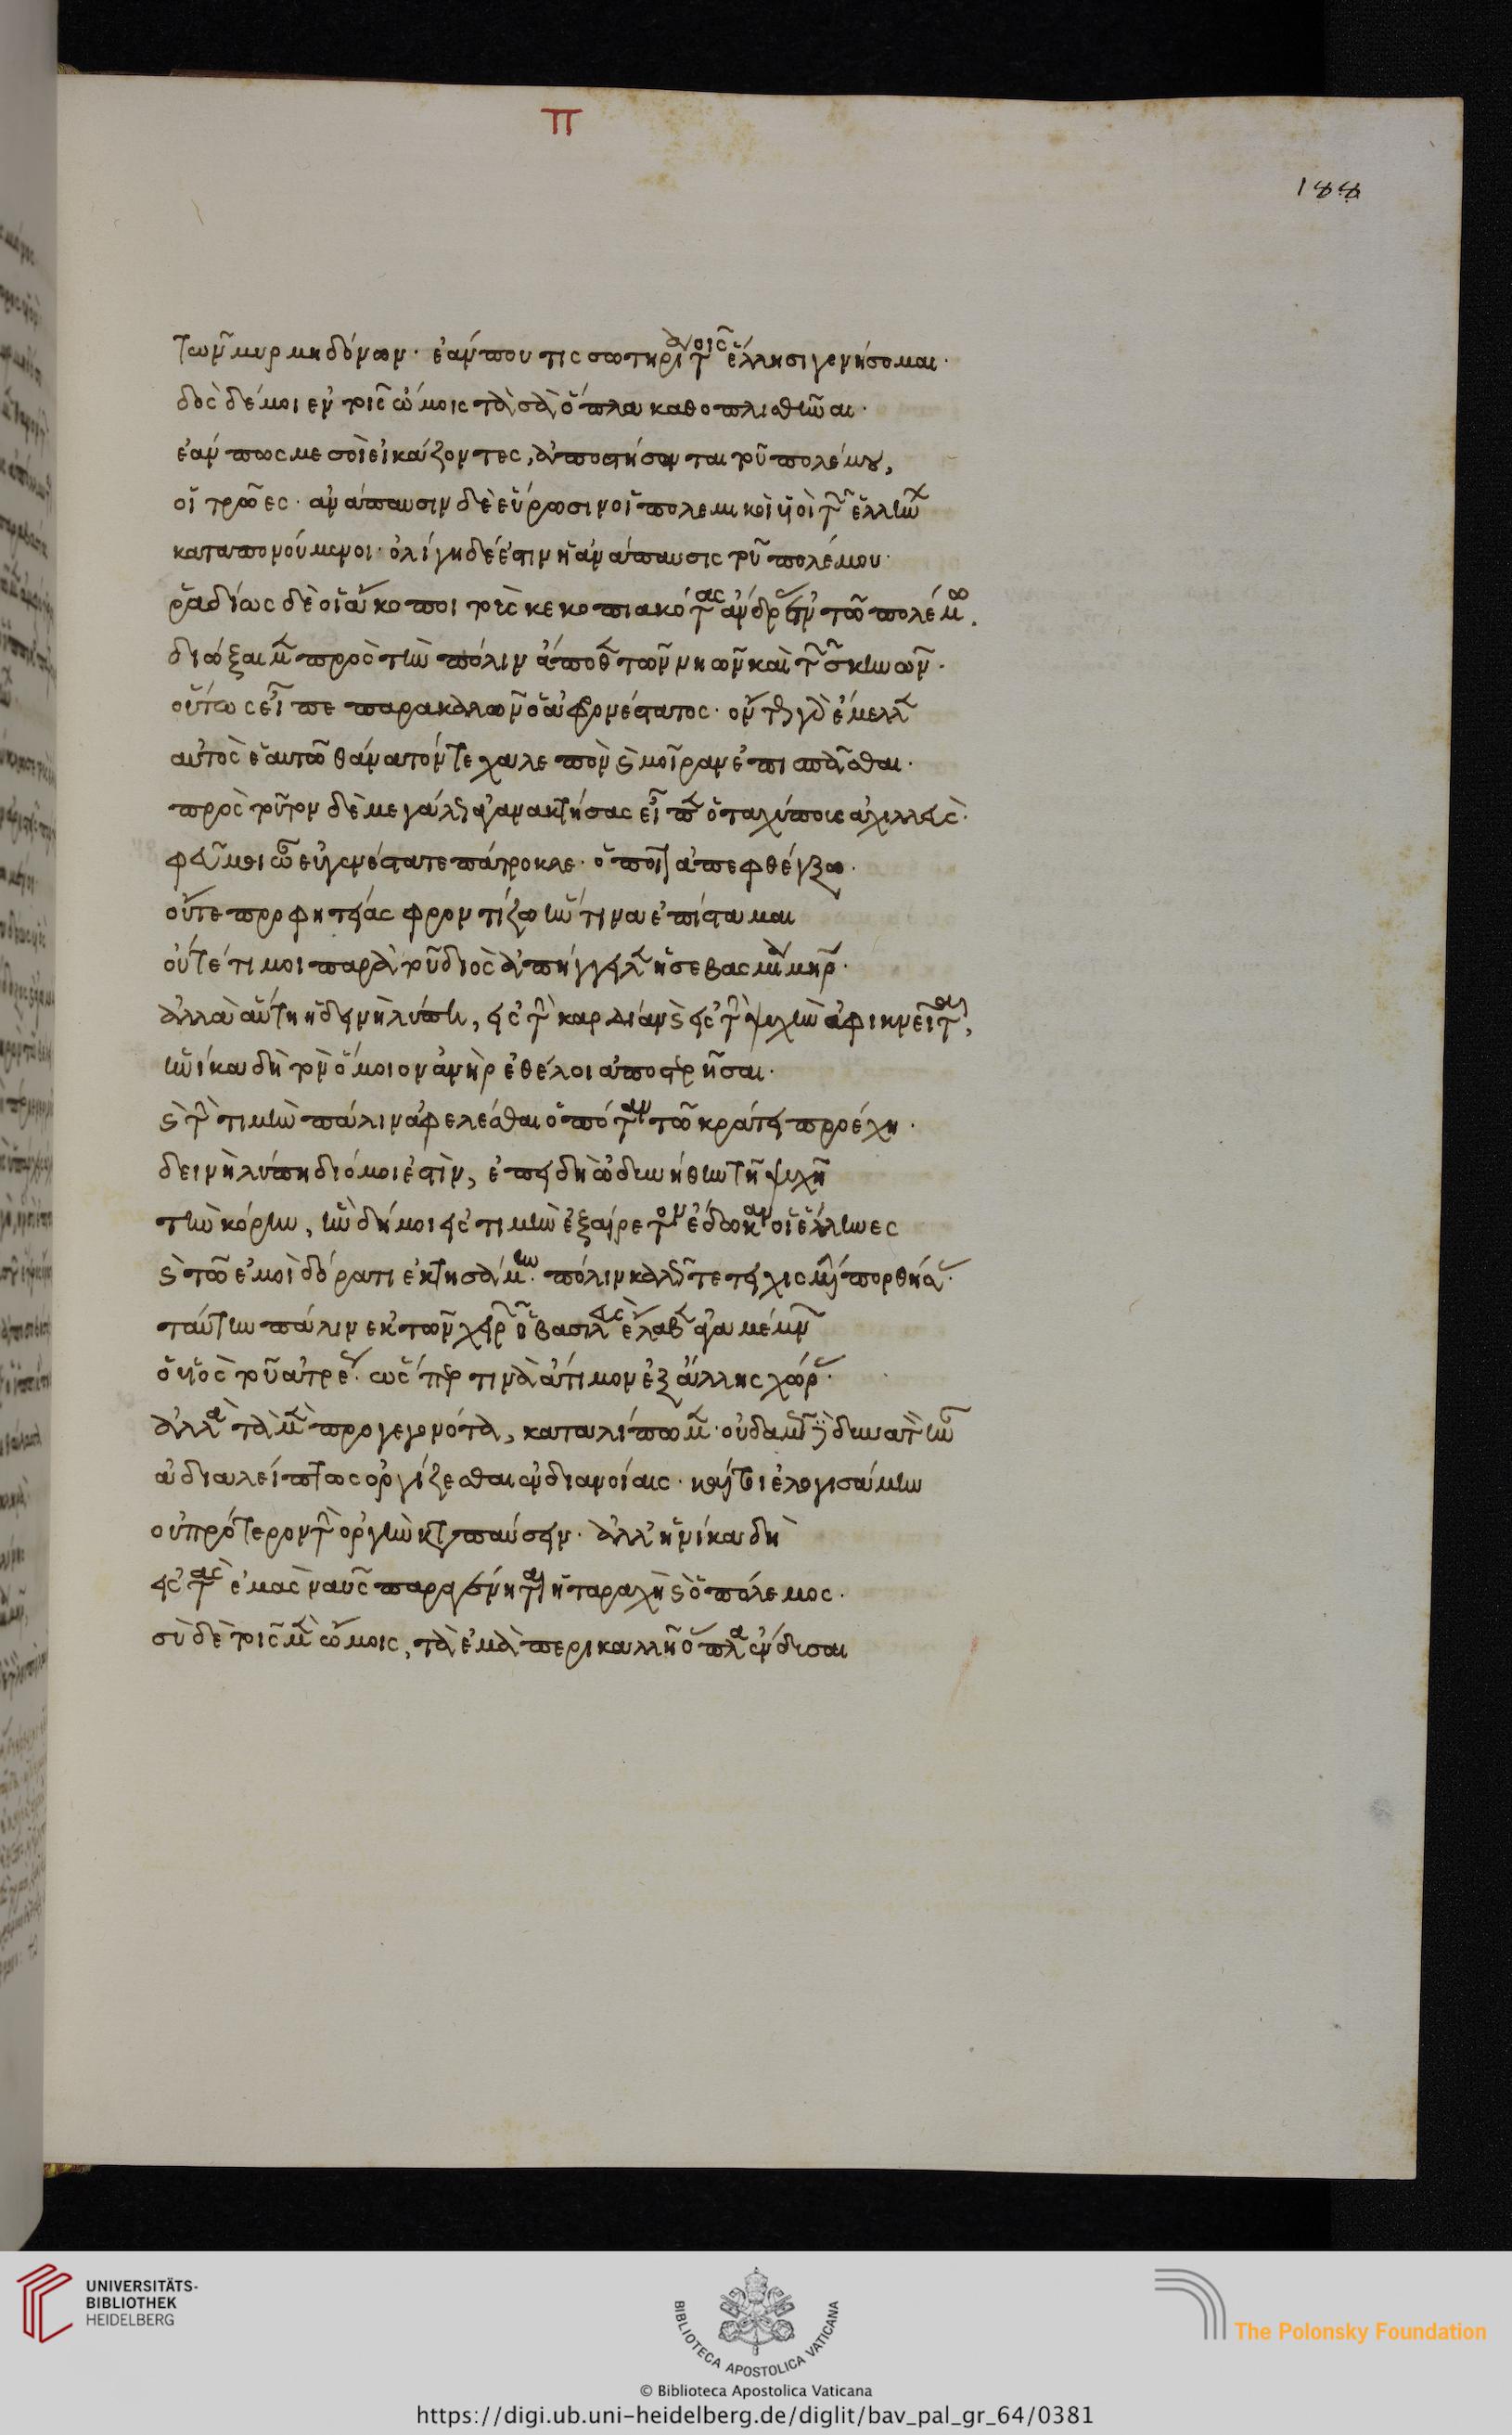 π
188
τῶν μυρμηδόνων· ἐάν που τις σωτηρία τοῖς ἕλλησι γενήσομαι·
δὸς δέ μοι ἐν τοῖς ὤμοις τὰ σὰ ὅπλα καθοπλισθῆναι·
ἐάν πως με σοὶ εἰκάζοντες, ἀποστήσωνται τοῦ πολέμου,
οἱ τρῶες· ἀνάπαυσιν δὲ εὕρωσιν οἱ πολεμικοὶ υἱοὶ τῶν ἑλλήνων
καταπονούμενοι· ὀλίγη δέ ἐστιν ἡ ἀνάπαυσις τοῦ πολέμου·
ῥαδίως δὲ οἱ ἄκοποι τοὺς κεκοπιακότας ἄνδρας ἐν τῷ πολέμῳ.
διώξαιμεν πρὸς τὴν πόλιν ἄποθεν τῶν νηῶν καὶ τῶν σκηνῶν·
οὕτως εἶπε παρακαλῶν ὁ ἀφρονέστατος· ὄντως γὰρ ἔμελλεν
αὐτὸς ἑαυτῷ θάνατόν τε χαλεπὸν καὶ μοῖραν ἐπισπᾶσθαι·
πρὸς τοῦτον δὲ μεγάλως ἀγανακτήσας εἶπεν ὁ ταχύπους ἀχιλλεύς·
φεῦ μοι ὦ εὐγενέστατε πάτροκλε· ὁποῖον ἀπεφθέγξω·
οὔτε προφητείας φροντίζω ἥν τινα ἐπίσταμαι
οὔτέ τι μοι παρὰ τοῦ διὸς ἀπήγγειλεν ἡ σεβασμία μήτηρ·
ἀλλὰ αὕτη ἡ δεινὴ λύπη, εἰς τὴν καρδίαν καὶ εἰς τὴν ψυχὴν ἀφικνεῖται,
ἡνίκα δὴ τὸν ὅμοιον ἀνὴρ ἐθέλοι ἀποστερῆσαι·
καὶ τὴν τιμὴν πάλιν ἀφελέσθαι ὁπόταν τῷ κράτει προέχη·
δεινὴ λύπη διό μοι ἐστὶν, ἐπειδὴ ὠδυνήθην τῇ ψυχῇ
τὴν κόρην, ἣν δή μοι εἰς τιμὴν ἐξαίρετον ἔδωκαν οἱ ἕλληνες
καὶ τῷ ἐμοὶ δόρατι ἐκτησάμην· πόλιν καλῶς τετειχισμένην πορθήσας·
ταύτην πάλιν ἐκ τῶν χειρῶν ὁ βασιλεὺς ἔλαβεν ἀγαμέμνων
ὁ υἱὸς τοῦ ἀτρέως· ὥσπερ τινὰ ἄτιμον ἐξ ἄλλης χώρας·
ἀλλὰ τὰ μὲν προγεγονότα, καταλίπωμεν· οὐδαμῶς γὰρ δυνατὸν ἦν
ἀδιαλείπτως ὀργίζεσθαι ἐν διανοίαις· καί τοι ἐλογισάμην
οὐ πρότερον τὴν ὀργὴν καταπαύσειν· ἀλλ' ἡνίκα δὴ
εἰς τὰς ἐμὰς ναῦς παραγένηται ἡ ταραχὴ καὶ ὁ πόλεμος·
σὺ δὲ τοῖς μὲν ὤμοις, τὰ ἐμὰ περικαλλῆ ὅπλα ἔνδυσαι
UNIVERSITÄTS-
BIBLIOTHEK
HEIDELBERG
BIBLIOTECA APOSTOLICA VATICANA
The Polonsky Foundation
© Biblioteca Apostolica Vaticana
https://digi.ub.uni-heidelberg.de/diglit/bav_pal_gr_64/0381